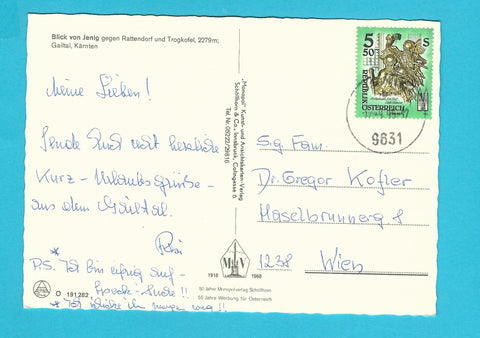 Blick von Jenig gegen Rattendorf und Trogkofel, 2279m;
Gailtal, Kärnten
Meine Lieben!
Sende Euch recht herzliche
Kurz-Urlaubsgrüße
aus dem Gailtal.
*
P.S. Ich bin eifrig auf
Speck-Suche!!
* Ich schicke ihn morgen weg!!
O 191.282
"Monopol" Kunst- und Ansichtskarten-Verlag
Schöllhorn & Co., Innsbruck,
Tel. Nr.
M V
1918 1968
50 Jahre Monopolverlag Schöllhorn
50 Jahre Werbung für Österreich
5 50 S
REPUBLIK
ÖSTERREICH
9631
S.g. Fam.
Dr. Gregor Kofler
Haselbrunnerg. 8
1238 Wien